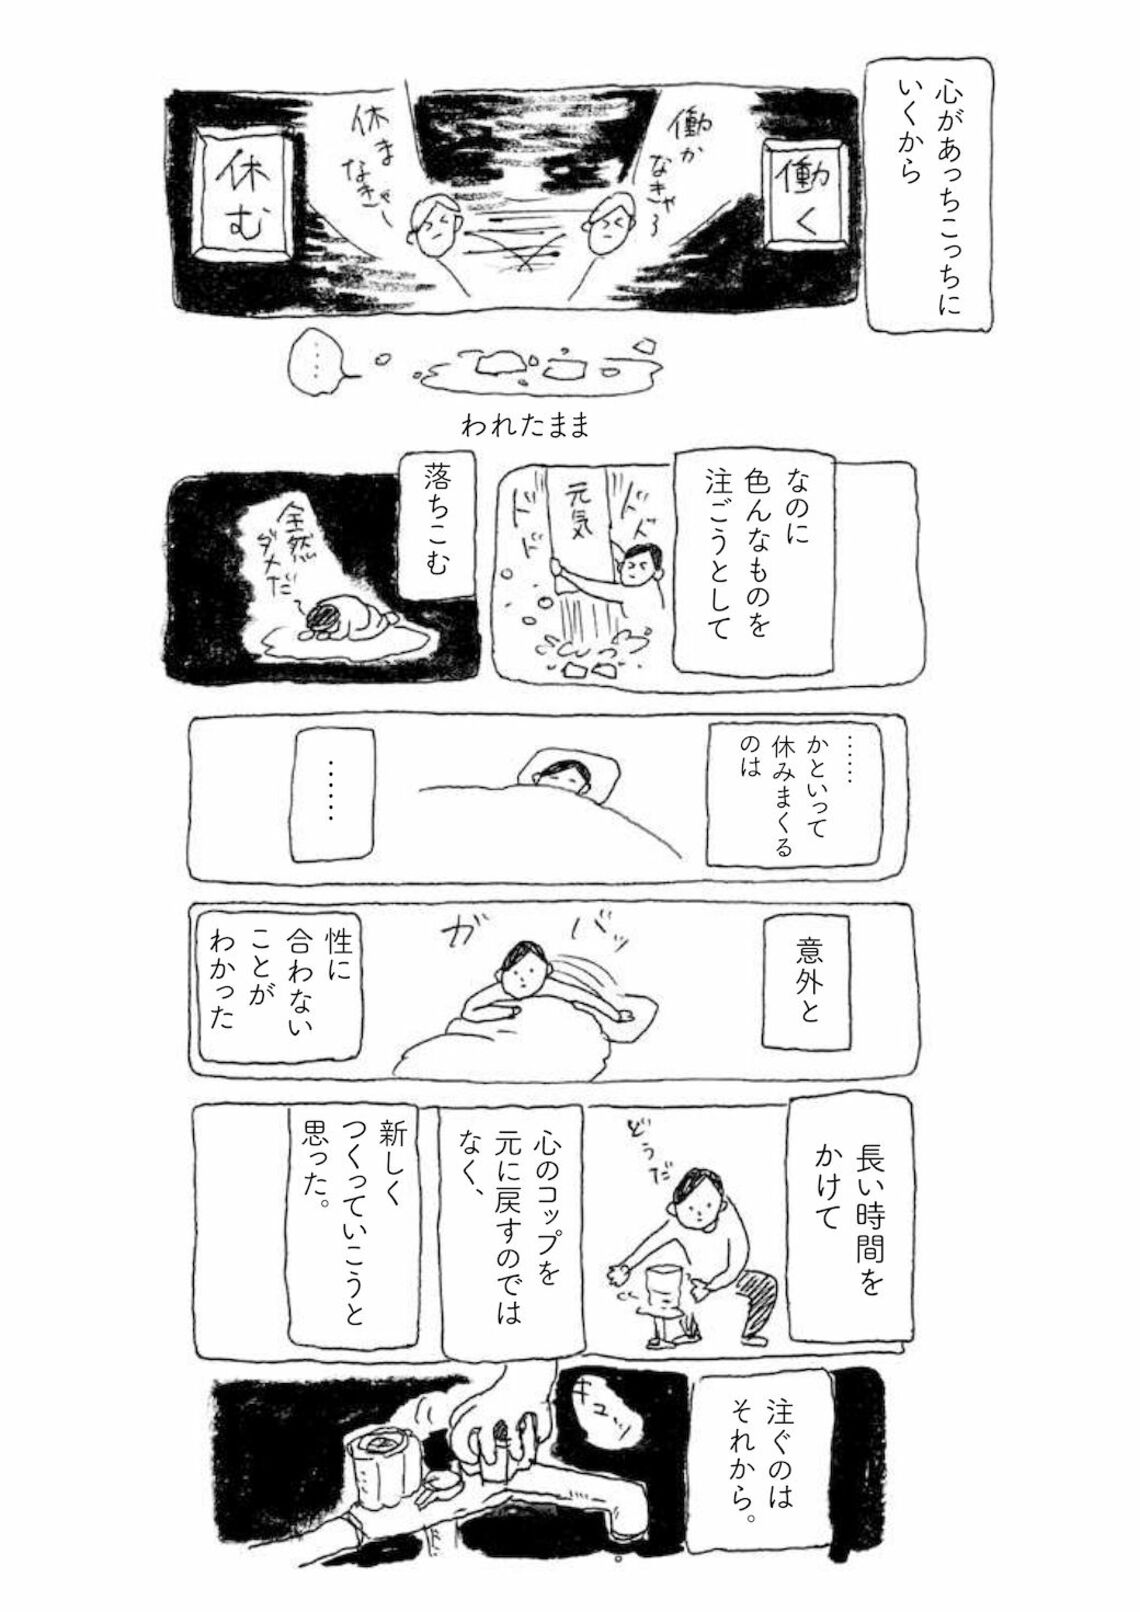 心があっちこっちに
いくから
働く
働か
なきゃ〜
休ま
なきゃ〜
休む
……
われたまま
なのに
色んなものを
注ごうとして
ドドド
元気
ドドド
落ちこむ
全然
ダメだ〜
……
かといって
休みまくる
のは
……
意外と
ガバッ
性に
合わない
ことが
わかった
長い時間を
かけて
どうだ
心のコップを
元に戻すのでは
なく、
新しく
つくっていこうと
思った。
注ぐのは
それから。
キュッ